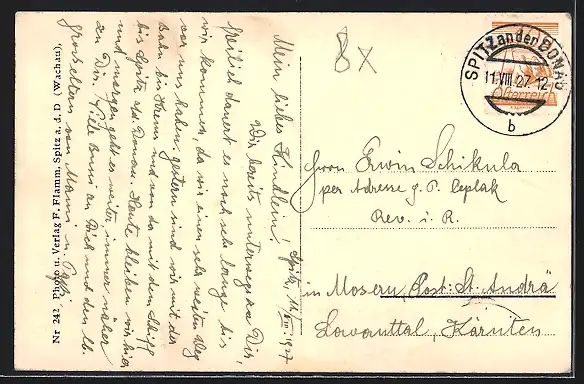 8x
SPITZ an der DONAU
11.VIII.27.12
b
Österreich
Spitz, 11./VIII 1927
Mein liebes Kindlein!
Wir bereits unterwegs zu Dir,
freilich dauert es noch sehr lange bis
wir kommen, da wir einen sehr weiten Weg
vor uns haben, gestern sind wir mit der
Bahn bis Krems und von da mit dem Schiff
bis Spitz a/d. Donau. Heute bleiben wir hier
und morgen geht es weiter immer näher
zu Dir. Viele Bussi an Dich und den lb.
Grosseltern von Mammi u. Pappi
Herrn Erwin Schikula
per Adresse g. P. Ceplak
Rev. i. R.
in Mosern Post: St. Andrä
Lavanttal, Kärnten
Nr 242 Photo- u. Verlag F. Flamm, Spitz a. d. D (Wachau).